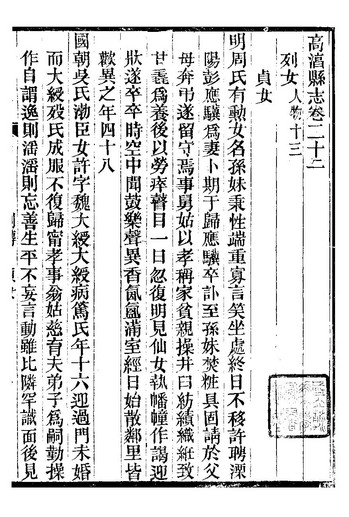 高淳縣志卷二十二
列女 人物十三
貞女
明周氏有勲女名孫妹秉性端重寡言笑坐處終日不移許聘溧
陽彭應驥爲妻卜期于歸應驥卒訃至孫妹焚粧具固請於父
母奔弔遂留守焉事舅姑以孝稱家貧親操井臼紡績織絍致
甘毳爲養後以勞瘁瞽目一日忽復明見仙女執幡幢作謁迎
狀遂卒卒時空中聞鼓樂聲異香氤氳滿室經日始散鄰里皆
歎異之年四十八
國朝吳氏渤臣女許字魏大綬大綬病篤氏年十六迎過門未婚
而大綬歿氏成服不復歸甯孝事翁姑慈育夫弟子爲嗣勤操
作自謂逸則滛滛則忘善生平不妄言動雖比隣罕識面後見